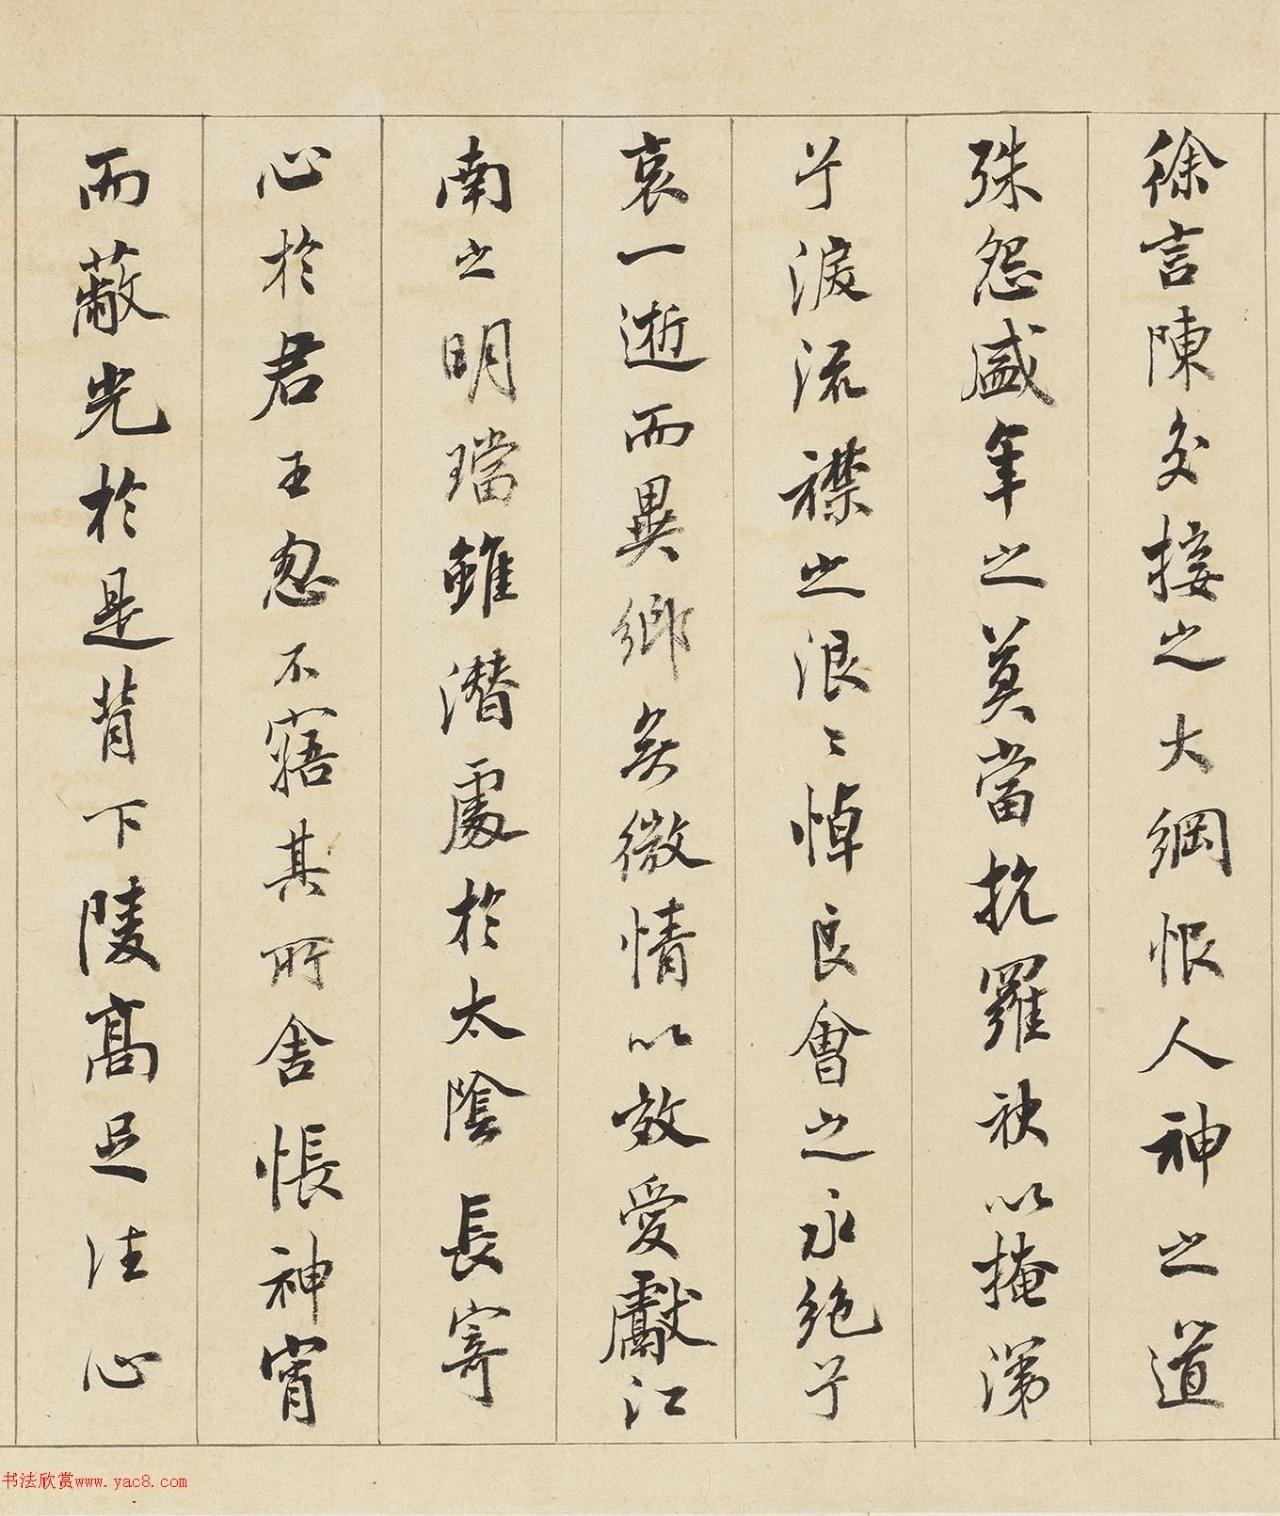 徐言陳交接之大綱恨人神之道
殊怨盛年之莫當抗羅袂以掩涕
兮淚流襟之浪〻悼良會之永絕兮
哀一逝而異鄉無微情以效愛獻江
南之明璫雖潛處於太陰長寄
心於君王忽不寤其所舍悵神宵
而蔽光於是背下陵高足往心
书法欣赏www.yac8.com